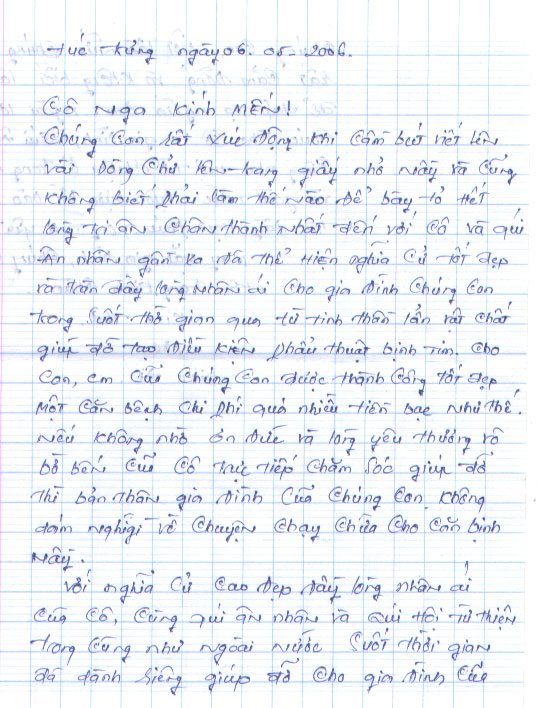 túc trưng ngày 06. 05- 2006.
Cô Nga Kính Mến!
Chúng Con, rất xúc động khi cầm bút viết lên
vài dòng chữ trên trang giấy nhỏ nầy và cũng
không biết phải làm thế nào để bày tỏ hết
lòng tri ân chân thành nhất đến với Cô và quí
Ân nhân gần xa đã thể hiện nghĩa cử tốt đẹp
và tràn đầy lòng nhân ái cho gia đình chúng con
trong suốt thờ gian qua từ tinh thần lẫn vât chất
giúp đỡ tạo điều kiện phẩu thuật bịnh tim. cho
con, em của chúng con được thành công tốt đẹp
một căn bệnh chi phí quá nhiều tiền bạc như thế.
nếu không nhờ ơn đức và lòng yêu thương vô
bờ bến của cô trực tiếp chăm sóc giúp đỡ
thì bản thân gia đình của chúng con không
dám nghĩ gì về chuyện chạy chữa cho căn bịnh
nầy.
với nghĩa cử cao đẹp đầy lòng nhân ái
của cô, cùng quí ân nhân và quí Hội từ thiện
trong cũng như ngoài nước suốt thời gian
đã dành riêng giúp đỡ cho gia đình của